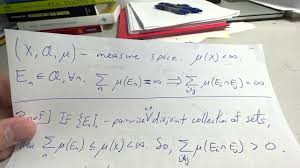 (X, a, μ) – measure space. μ(X) < ∞.
E_n ∈ a, ∀n. Σ_n μ(E_n) = ∞ ⇒ Σ_{i<j} μ(E_i ∩ E_j) = ∞
Proof] If {E}_n - pairwise disjoint collection of sets,
then Σ_n μ(E_n) ≤ μ(X) < ∞. So, Σ_{i<j} μ(E_i ∩ E_j) > 0.